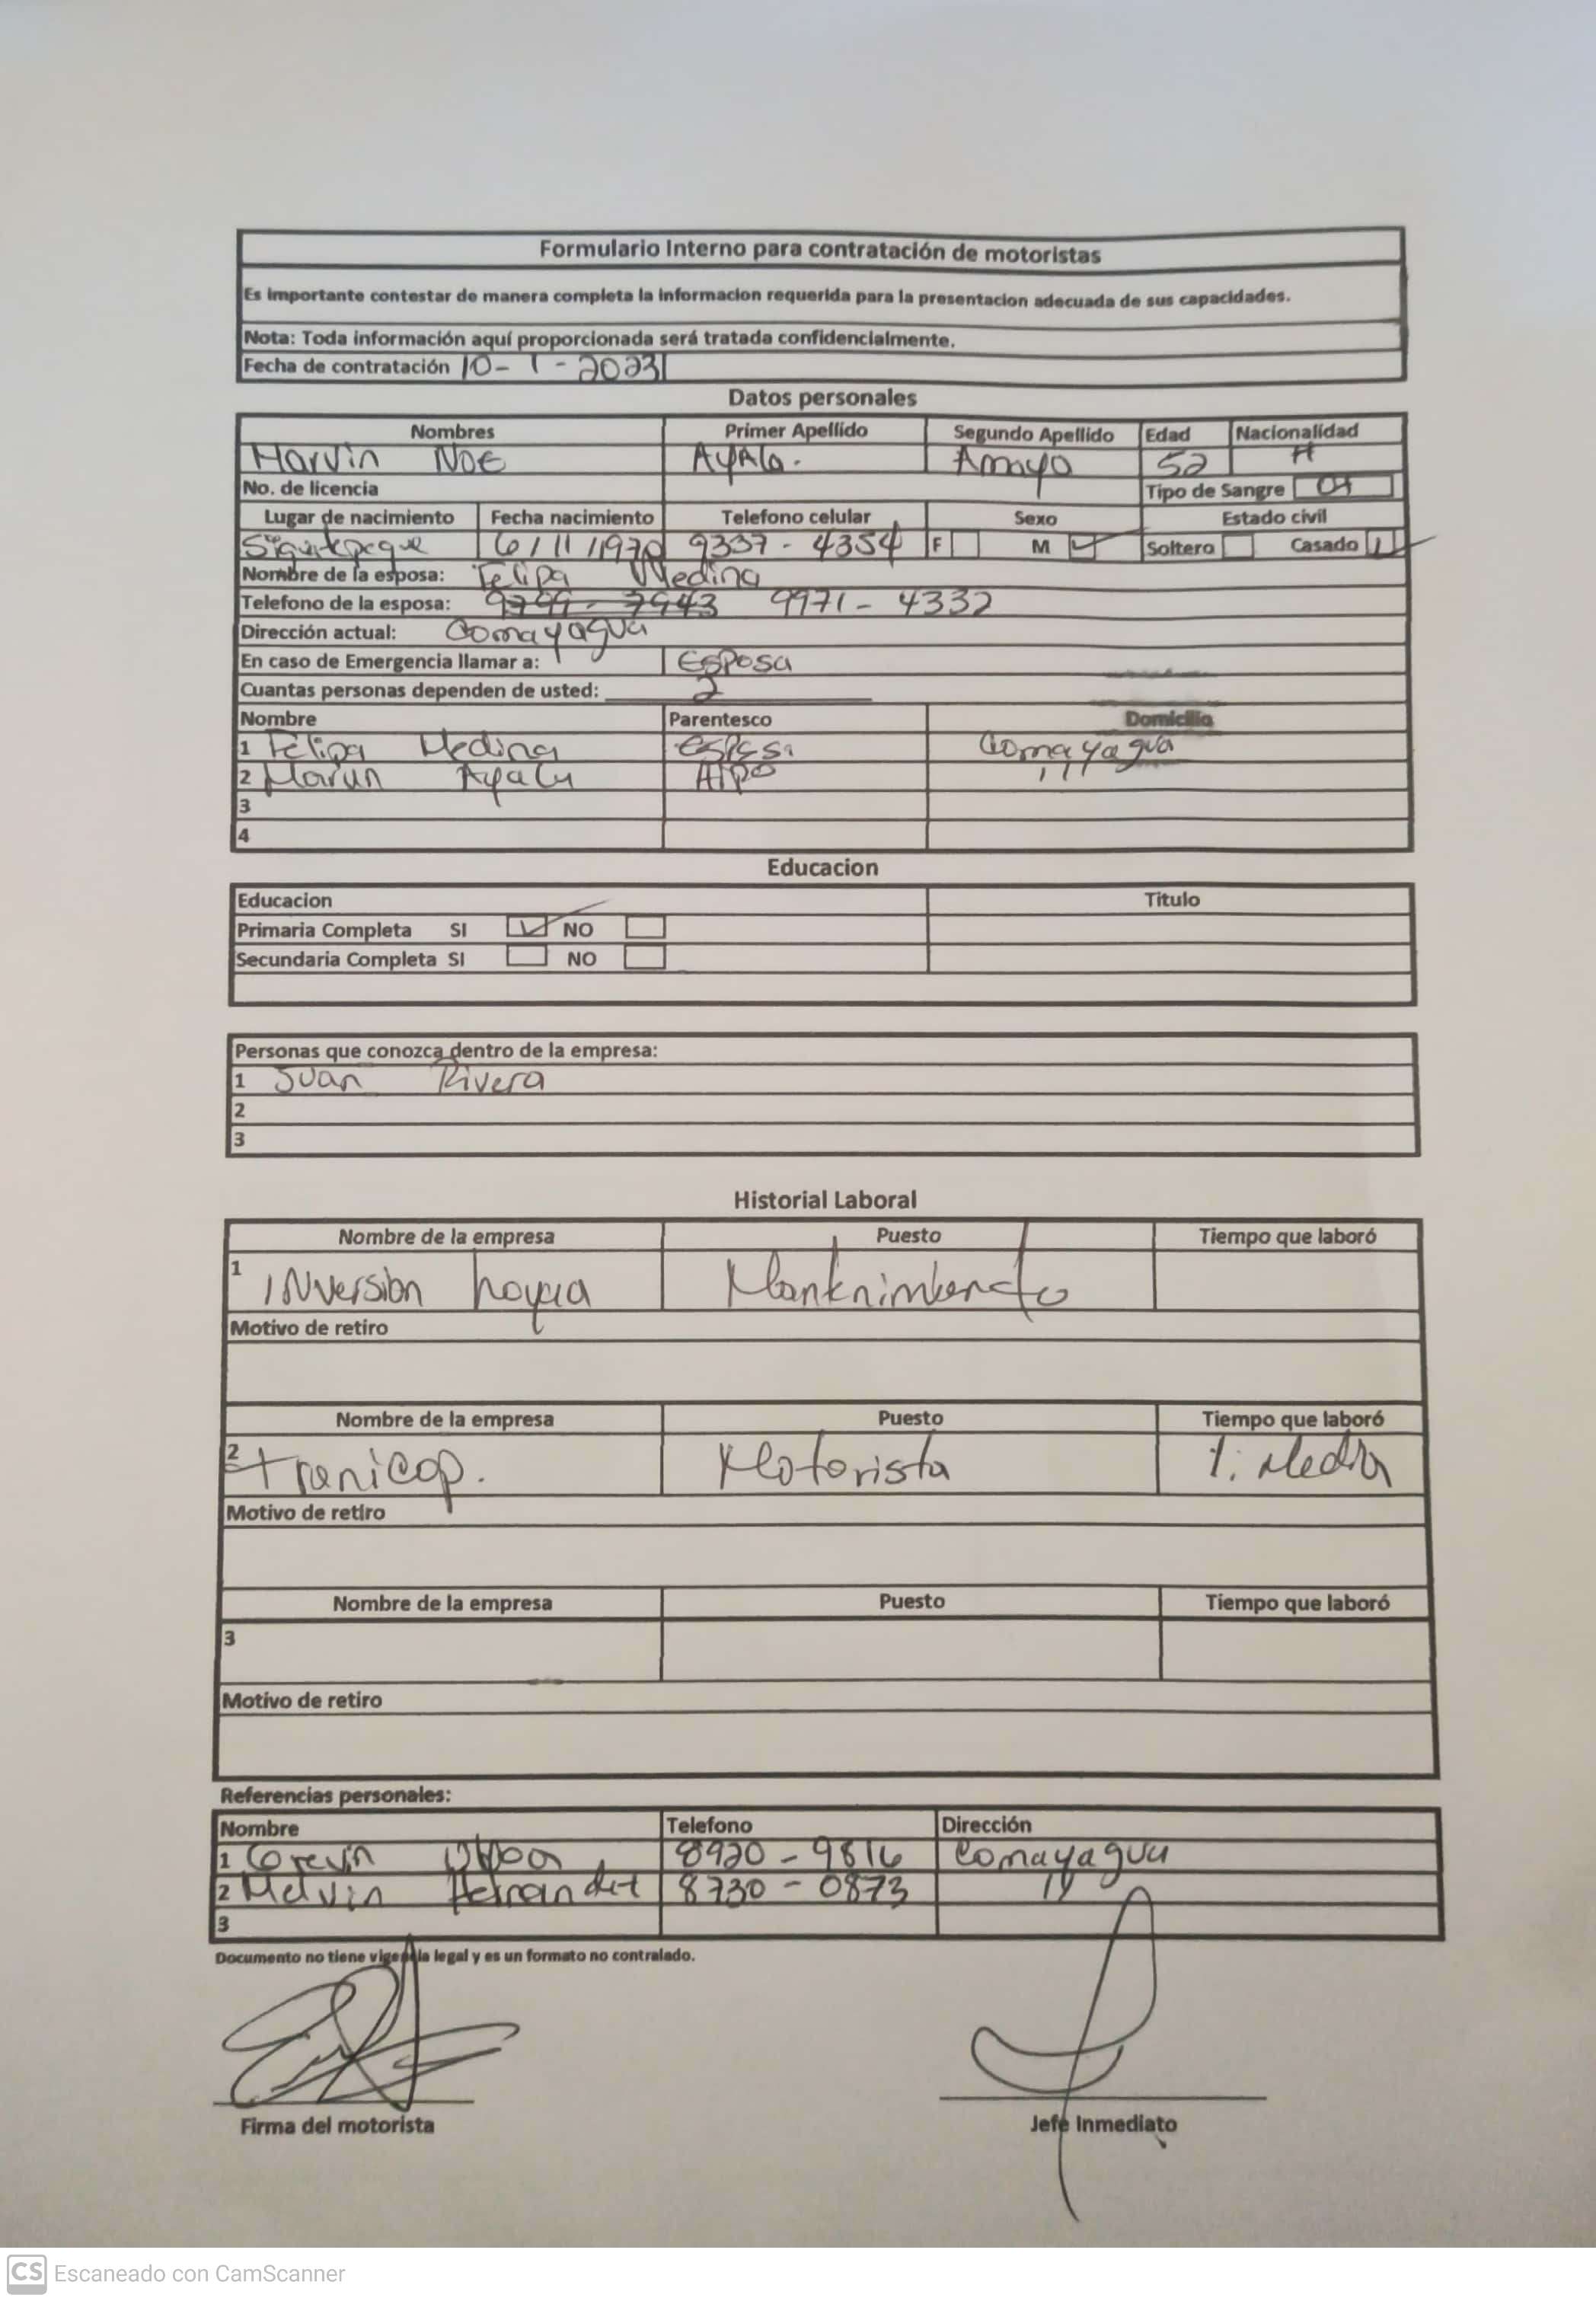 Formulario Interno para contratación de motoristas
Es importante contestar de manera completa la informacion requerida para la presentacion adecuada de sus capacidades.
Nota: Toda información aquí proporcionada será tratada confidencialmente.
Fecha de contratación 10-1-2023
Datos personales
Nombres Primer Apellido Segundo Apellido Edad Nacionalidad
Marvin Noe Ayala. Amaya 52 H
No. de licencia Tipo de Sangre
Lugar de nacimiento Fecha nacimiento Telefono celular Sexo Estado civil
Siguatepeque 6/11/1970 9337-4354 F M Soltero Casado
Nombre de la esposa: Felipa Medina
Telefono de la esposa: 9971-4332
Dirección actual: Comayagua
En caso de Emergencia llamar a: Esposa
Cuantas personas dependen de usted: 2
Nombre Parentesco Domicilio
1 Felipa Medina esposa Comayagua
2 Ayala
3
4
Educacion
Educacion Titulo
Primaria Completa SI NO
Secundaria Completa SI NO
Personas que conozca dentro de la empresa:
1 Juan Rivera
2
3
Historial Laboral
Nombre de la empresa Puesto Tiempo que laboró
1 INversion
Motivo de retiro
Nombre de la empresa Puesto Tiempo que laboró
2 Motorista
Motivo de retiro
Nombre de la empresa Puesto Tiempo que laboró
3
Motivo de retiro
Referencias personales:
Nombre Telefono Dirección
1 8920-9816 Comayagua
2 Melvin Hernandez 8730-0873 11
3
Documento no tiene vigencia legal y es un formato no contralado.
Firma del motorista Jefe Inmediato
CS Escaneado con CamScanner